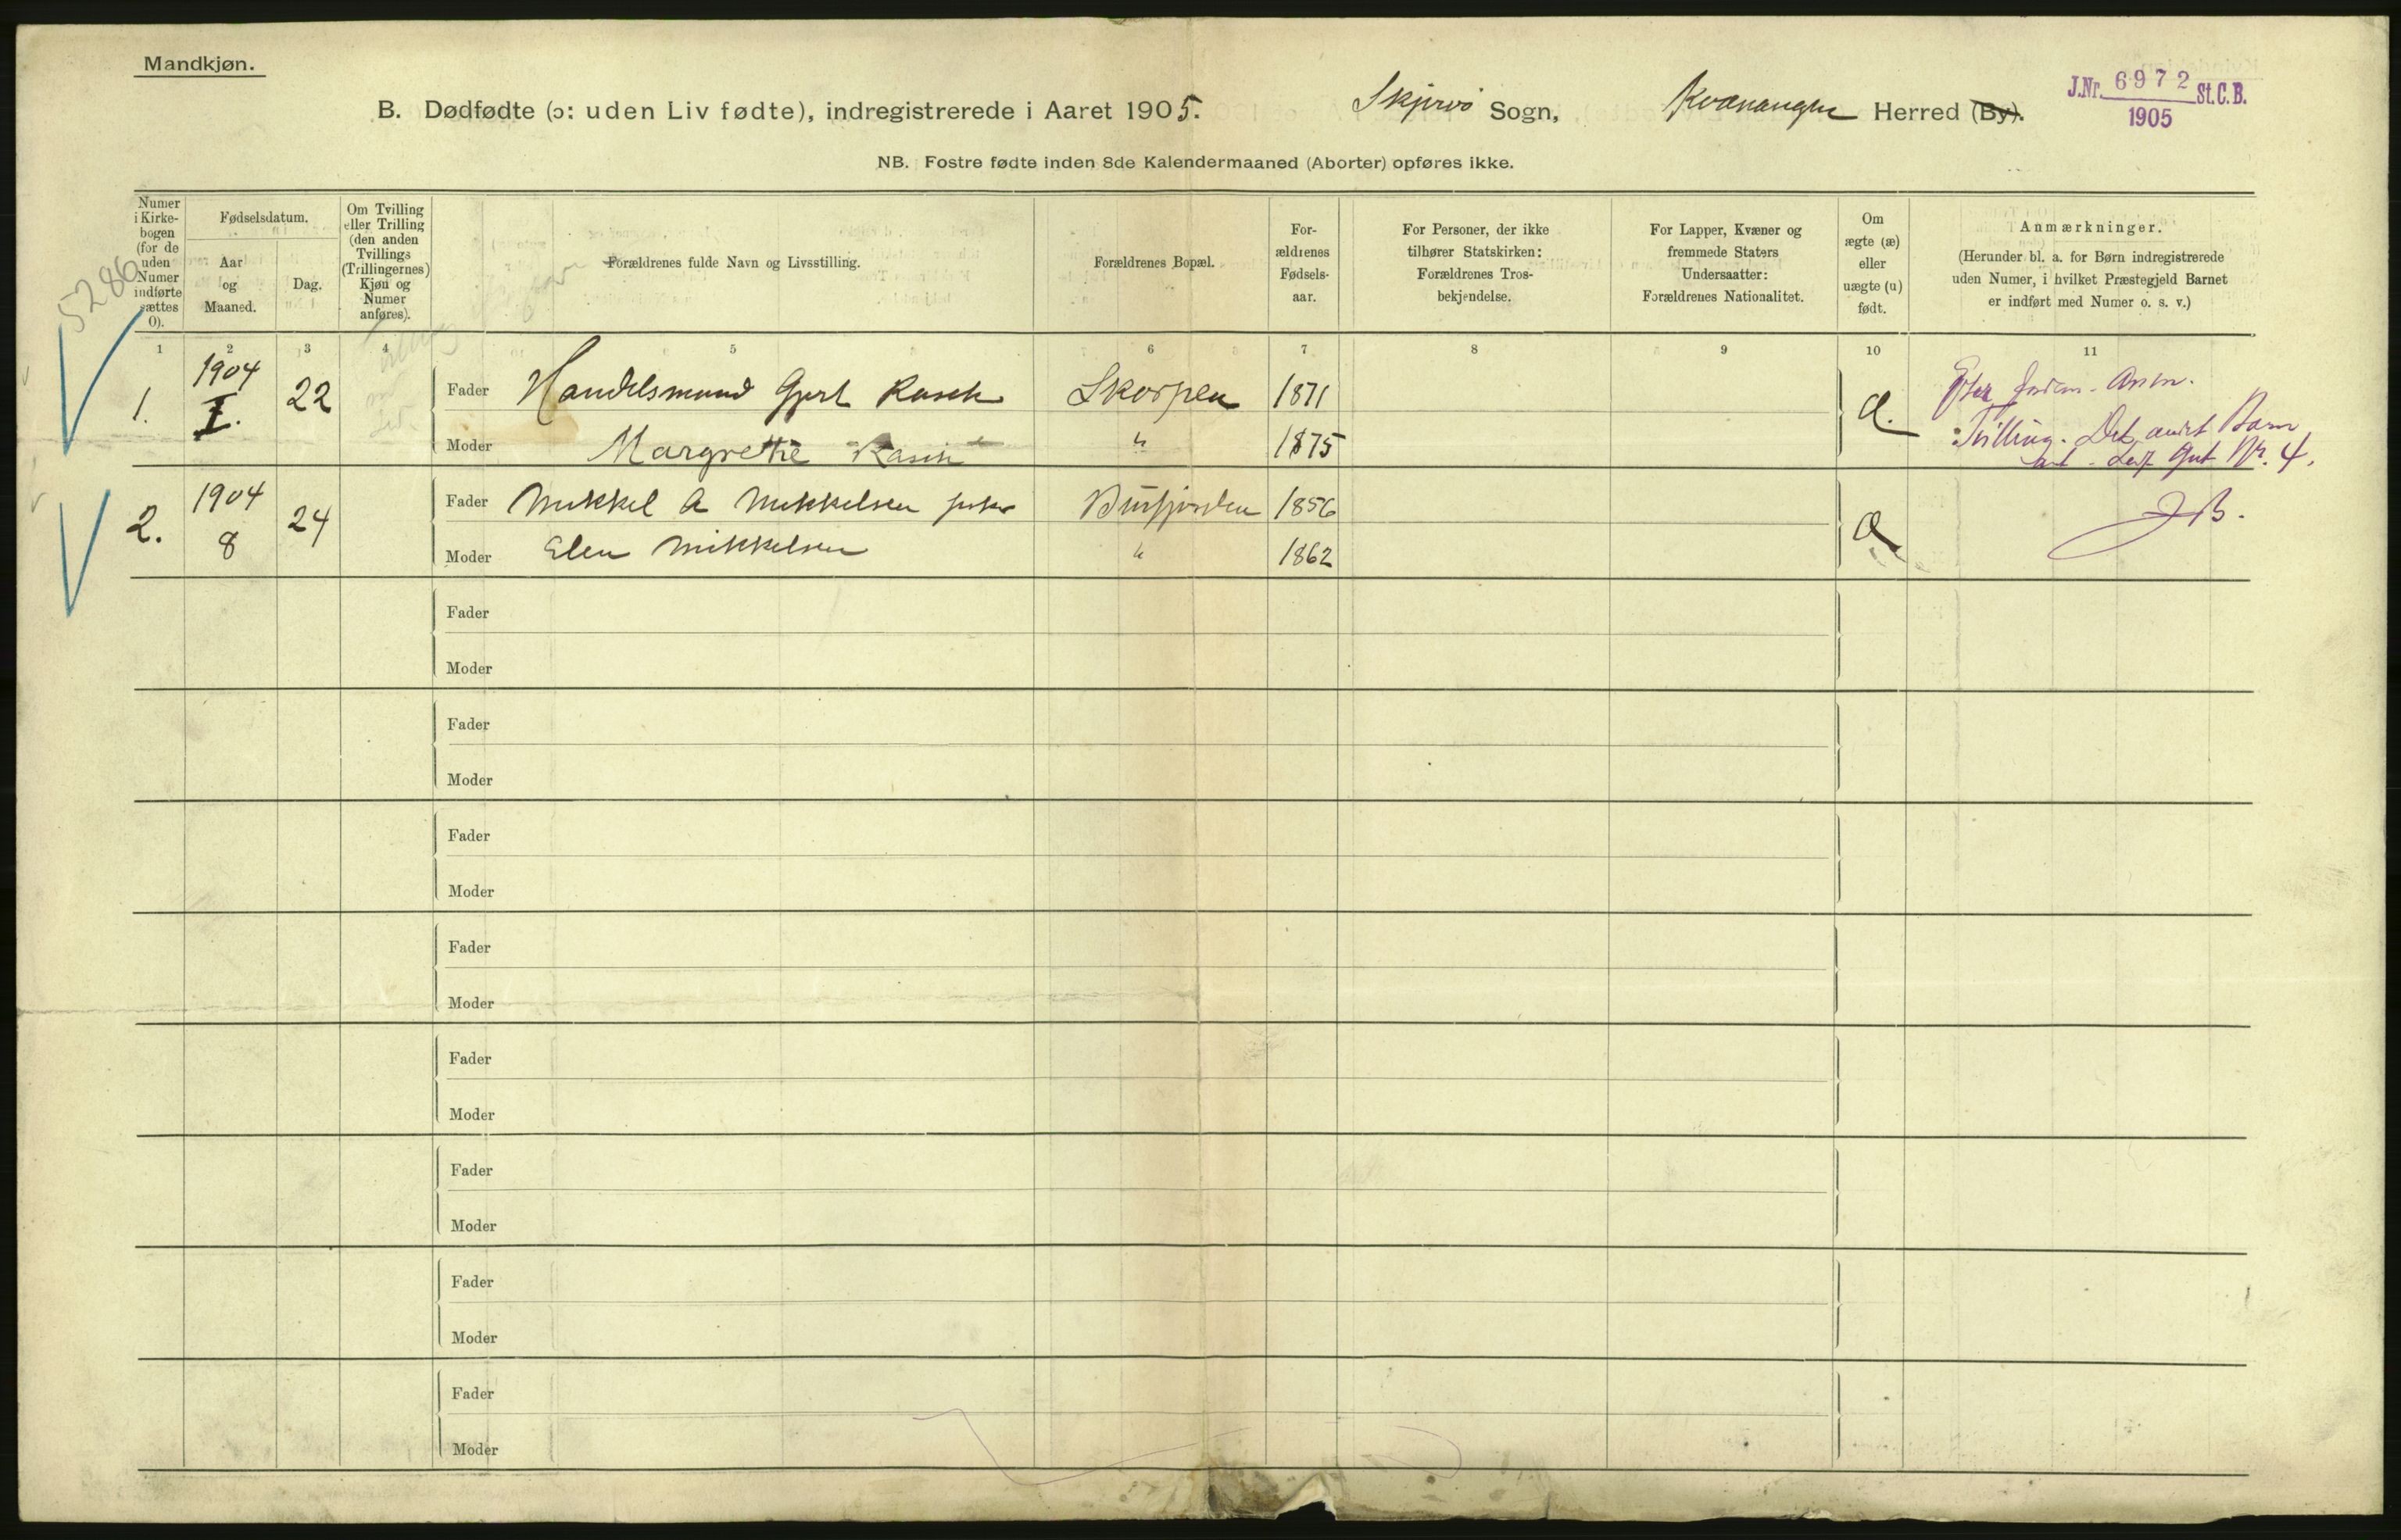 Mandkjøn.
B. Dødfødte (ɔ: uden Liv fødte), indregistrerede i Aaret 1905. Skjervø Sogn, Kvænangen Herred (By).
J.Nr. 6972 St.C.B.
1905
NB. Fostre fødte inden 8de Kalendermaaned (Aborter) opføres ikke.
5286
Numer i Kirke-
bogen
(for de
uden
Numer
indførte
sættes
0).
Fødselsdatum.
Aar
og
Maaned.
Dag.
Om Tvilling
eller Trilling
(den anden
Tvillings
(Trillingernes)
Kjøn og
Numer
anføres).
Forældrenes fulde Navn og Livsstilling.
Forældrenes Bopæl.
For-
ældrenes
Fødsels-
aar.
For Personer, der ikke
tilhører Statskirken:
Forældrenes Tros-
bekjendelse.
For Lapper, Kvæner og
fremmede Staters
Undersaatter:
Forældrenes Nationalitet.
Om
ægte (æ)
eller
uægte (u)
født.
Anmærkninger.
(Herunder bl. a. for Børn indregistrerede
uden Numer, i hvilket Præstegjeld Barnet
er indført med Numer o. s. v.)
1 2 3 4 5 6 7 8 9 10 11
1. 1904 I. 22 Fader Handelsmand Gjert Rasch Skorpen 1871 æ.
Moder Margrethe Rasch " 1875
Tvilling. Det andet Barn
Gut Nr. 4.
2. 1904 8 24 Fader Mikkel A Mikkelsen fisker Burfjorden 1856 æ JB.
Moder Elen Mikkelsen " 1862
Fader
Moder
Fader
Moder
Fader
Moder
Fader
Moder
Fader
Moder
Fader
Moder
Fader
Moder
Fader
Moder